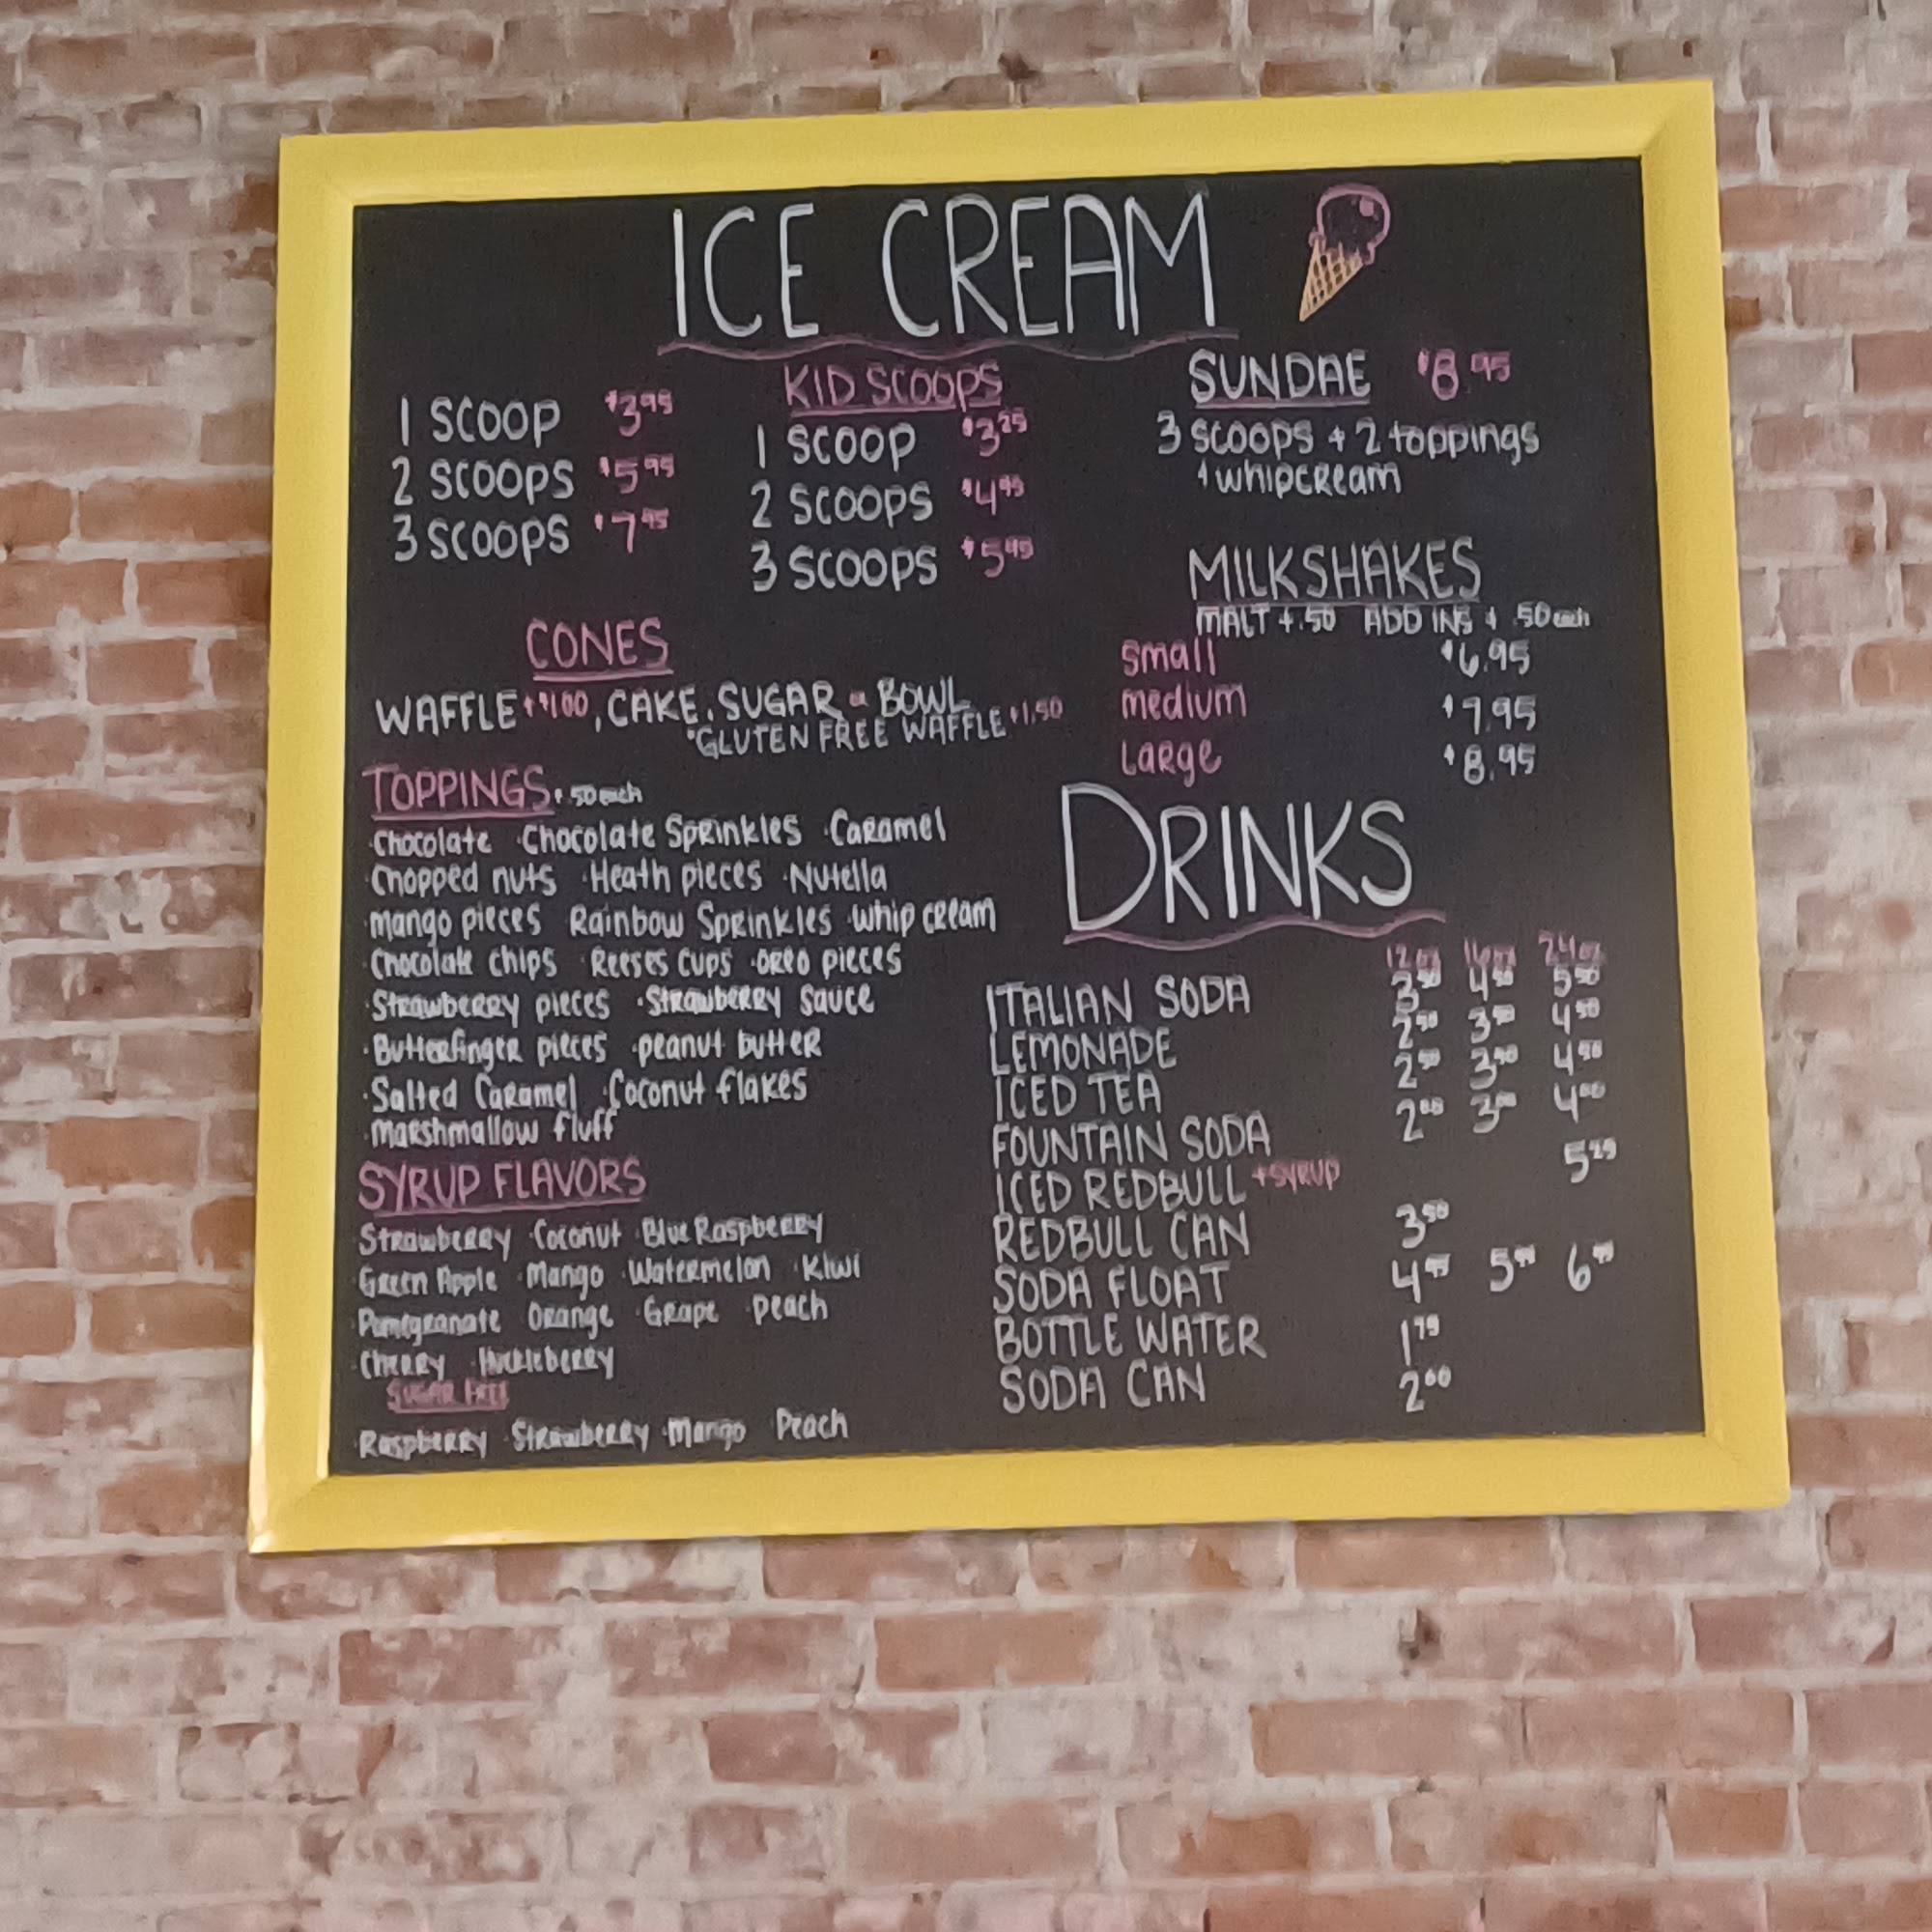 ICE CREAM
1 SCOOP $3.95
2 SCOOPS $5.95
3 SCOOPS $7.95
KID SCOOPS
1 SCOOP $3.25
2 SCOOPS $4.95
3 SCOOPS $5.95
SUNDAE $8.95
3 SCOOPS + 2 toppings
+ whipcream
MILKSHAKES
MALT +.50 ADD INS + .50 each
Small $6.95
medium $7.95
Large $8.95
CONES
WAFFLE + $1.00, CAKE, SUGAR or BOWL
*GLUTEN FREE WAFFLE +1.50
TOPPINGS + .50 each
·Chocolate ·Chocolate Sprinkles ·Caramel
·Chopped nuts ·Heath pieces ·Nutella
·mango pieces Rainbow Sprinkles ·whip cream
·Chocolate chips ·Reeses cups ·oreo pieces
·Strawberry pieces ·Strawberry Sauce
·Butterfinger pieces ·peanut butter
·Salted Caramel ·Coconut flakes
·marshmallow fluff
SYRUP FLAVORS
Strawberry ·Coconut ·Blue Raspberry
·Green Apple ·Mango ·Watermelon ·Kiwi
·Pomegranate Orange ·Grape ·Peach
·Cherry ·Huckleberry
SUGAR FREE
·Raspberry ·Strawberry ·Mango Peach
DRINKS
12 oz 16 oz 24 oz
ITALIAN SODA 3.50 4.50 5.50
LEMONADE 2.50 3.50 4.50
ICED TEA 2.50 3.50 4.50
FOUNTAIN SODA 2.00 3.00 4.00
ICED REDBULL + SYRUP 5.29
REDBULL CAN 3.50
SODA FLOAT 4.95 5.95 6.95
BOTTLE WATER 1.79
SODA CAN 2.00